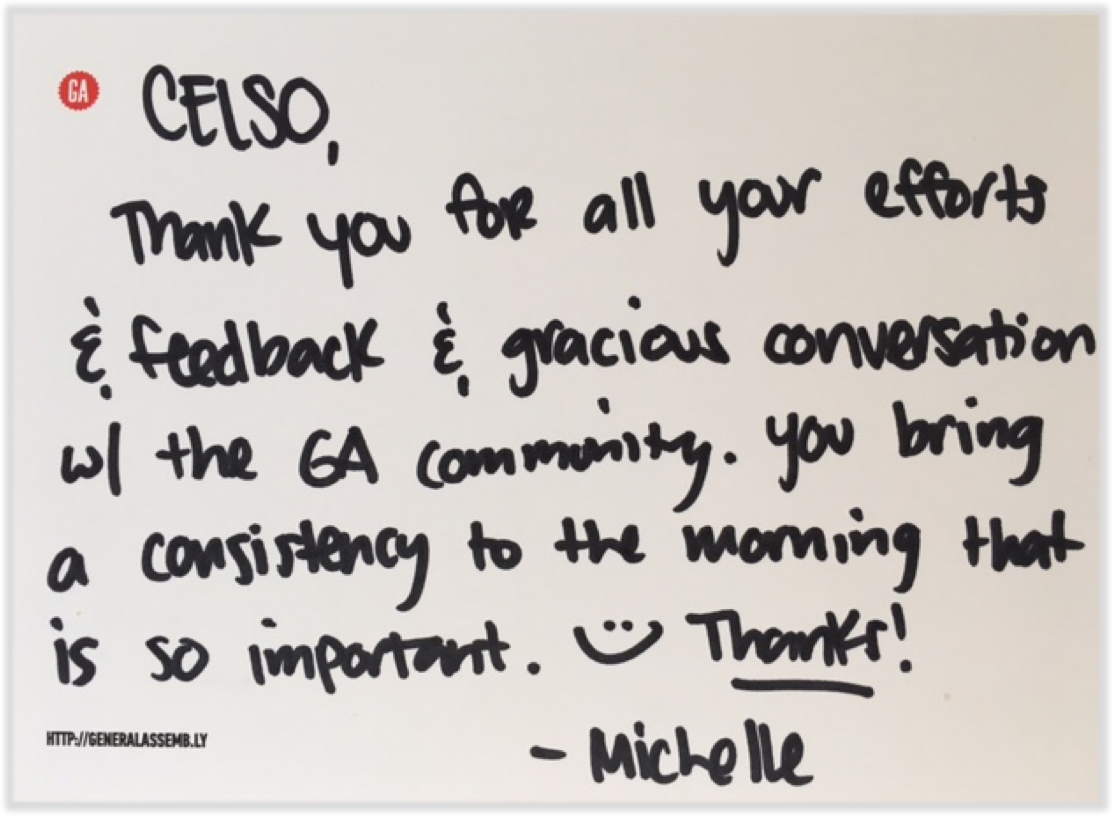 GA
CELSO,
Thank you for all your efforts
& feedback & gracious conversation
w/ the GA community. you bring
a consistency to the morning that
is so important. Thanks!
HTTP://GENERALASSEMB.LY
- Michelle